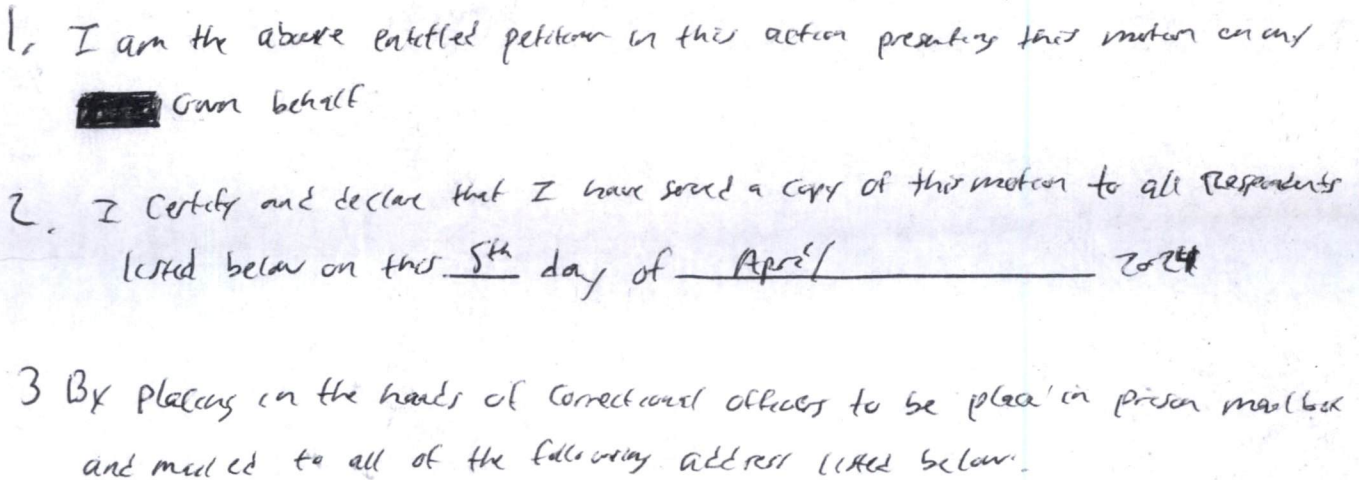 1. I am the above entitled petitioner in this action presenting this motion on my
own behalf
2. I certify and declare that I have served a copy of this motion to all Respondents
listed below on this 5th day of April 2024
3 By placing in the hands of correctional officers to be place in prison mailbox
and mailed to all of the following address listed below.